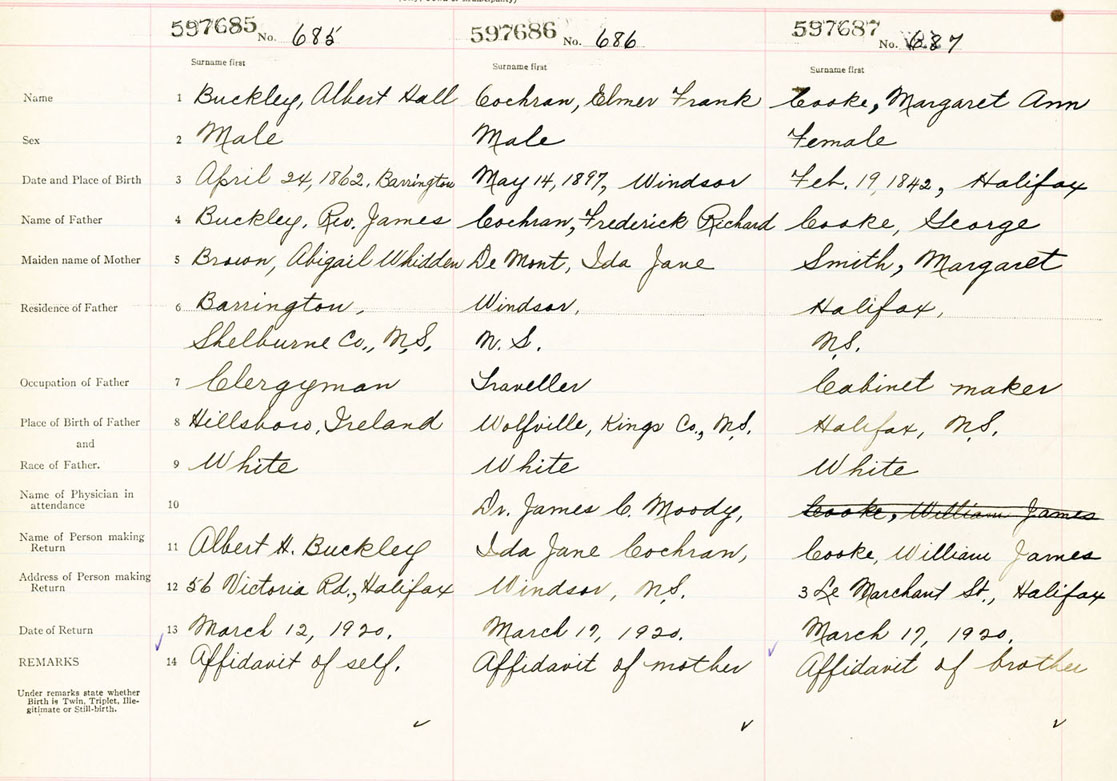 597685 No. 685 597686 No. 686 597687 No. 687
Surname first Surname first Surname first
Name 1 Buckley, Albert Hall Cochran, Elmer Frank Cooke, Margaret Ann
Sex 2 Male Male Female
Date and Place of Birth 3 April 24, 1862, Barrington May 14, 1897, Windsor Feb. 19, 1842, Halifax
Name of Father 4 Buckley, Rev. James Cochran, Frederick Richard Cooke, George
Maiden name of Mother 5 Brown, Abigail Whidden De Mont, Ida Jane Smith, Margaret
Residence of Father 6 Barrington, Windsor, Halifax,
Shelburne Co., N.S. N.S. N.S.
Occupation of Father 7 Clergyman Traveller Cabinet maker
Place of Birth of Father 8 Hillsboro, Ireland Wolfville, Kings Co., N.S. Halifax, N.S.
and
Race of Father. 9 White White White
Name of Physician in
attendance 10 Dr. James C. Moody, Cooke, William James
Name of Person making
Return 11 Albert H. Buckley Ida Jane Cochran, Cooke, William James
Address of Person making
Return 12 56 Victoria Rd., Halifax Windsor, N.S. 3 Le Marchant St., Halifax
Date of Return 13 March 12, 1920. March 17, 1920. March 17, 1920.
REMARKS 14 Affidavit of self. Affidavit of mother Affidavit of brother
Under remarks state whether
Birth is Twin, Triplet, Ille-
gitimate or Still-birth.